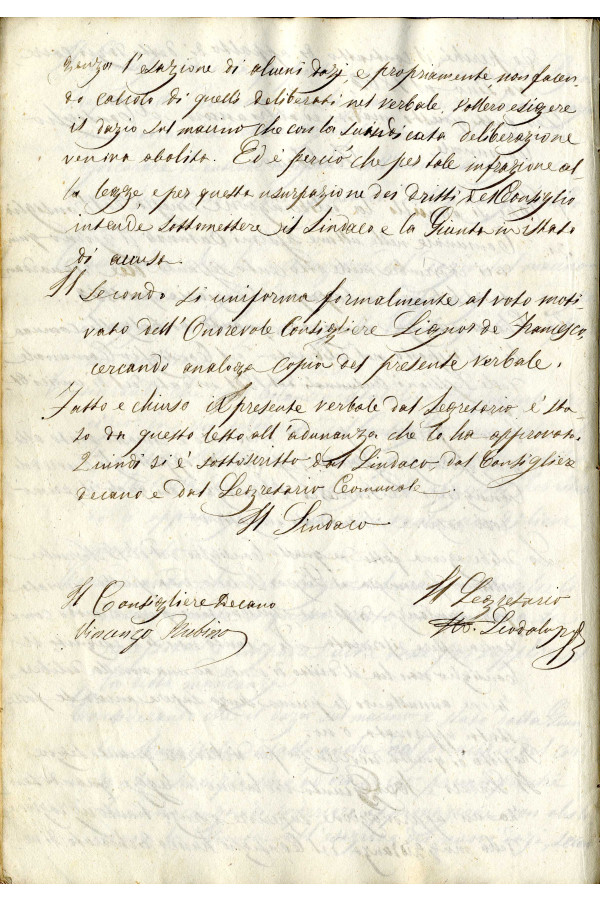 genza l'esazione di alcuni dazi e propriamente non facen
do calcolo di quelli deliberati nel verbale vollero esiggere
il dazio sul macino che con la suindicata deliberazione
veniva abolito. Ed è perciò che per tale infrazione al
la legge e per questa usurpazione dei dritti del Consiglio
intende sottomettere il Sindaco e la Giunta in istato
di accusa.
Il Secondo si uniforma formalmente al voto moti
vato dell'Onorevole Consigliere de Francesco,
cercando analoga copia del presente verbale.
Fatto e chiuso il presente verbale dal Segretario è sta
to da questo letto all'adunanza che lo ha approvato.
Quindi si è sottoscritto dal Sindaco, dal Consigliere
decano e dal Segretario Comunale.
Il Sindaco
Il Consigliere Decano
Il Segretario
Vincenzo Rubino